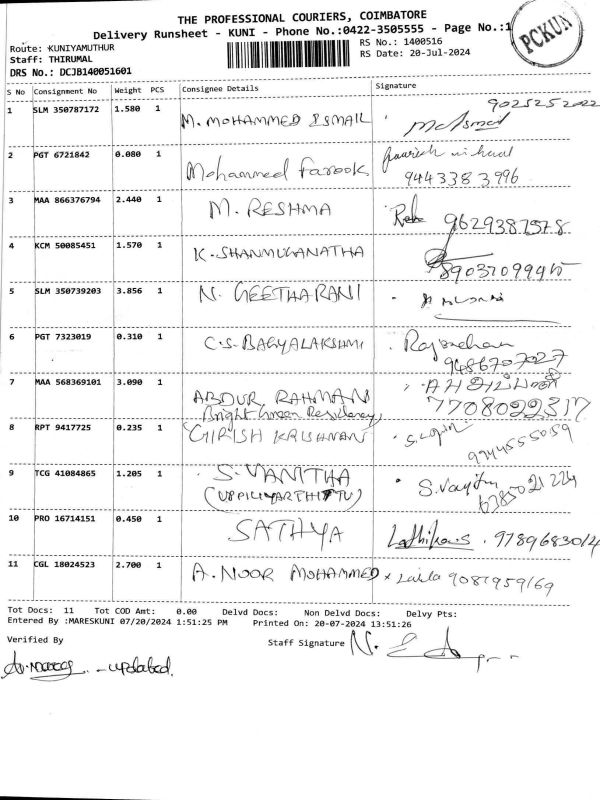 THE PROFESSIONAL COURIERS, COIMBATORE
Delivery Runsheet - KUNI - Phone No.:0422-3505555 - Page No.:1
PCKUN
Route: KUNIYAMUTHUR
RS No.: 1400516
Staff: THIRUMAL
RS Date: 20-Jul-2024
DRS No.: DCJB140051601
S No Consignment No Weight PCS Consignee Details Signature
1 SLM 350787172 1.580 1 M. MOHAMMED ISMAIL 9025252022
2 PGT 6721842 0.080 1 Mohammed Farook 9443383996
3 MAA 866376794 2.440 1 M. RESHMA 9629387578
4 KCM 50085451 1.570 1 K. SHANMUGANATHA
5 SLM 350739203 3.856 1 N. GEETHARANI
6 PGT 7323019 0.310 1 C.S. BAGYALAKSHMI 9486707027
7 MAA 568369101 3.090 1 ABDUR RAHMAN 7708022317
Bright Green Residency
8 RPT 9417725 0.235 1 GIRISH KRISHNAN 9744555059
9 TCG 41084865 1.205 1 S. VANITHA
(UPPILIYARTHITTU)
10 PRO 16714151 0.450 1 SATHYA 9789683014
11 CGL 18024523 2.700 1 A. NOOR MOHAMMED x Laila 9087959169
Tot Docs: 11 Tot COD Amt: 0.00 Delvd Docs: Non Delvd Docs: Delvy Pts:
Entered By :MARESKUNI 07/20/2024 1:51:25 PM Printed On: 20-07-2024 13:51:26
Verified By Staff Signature
- updated.